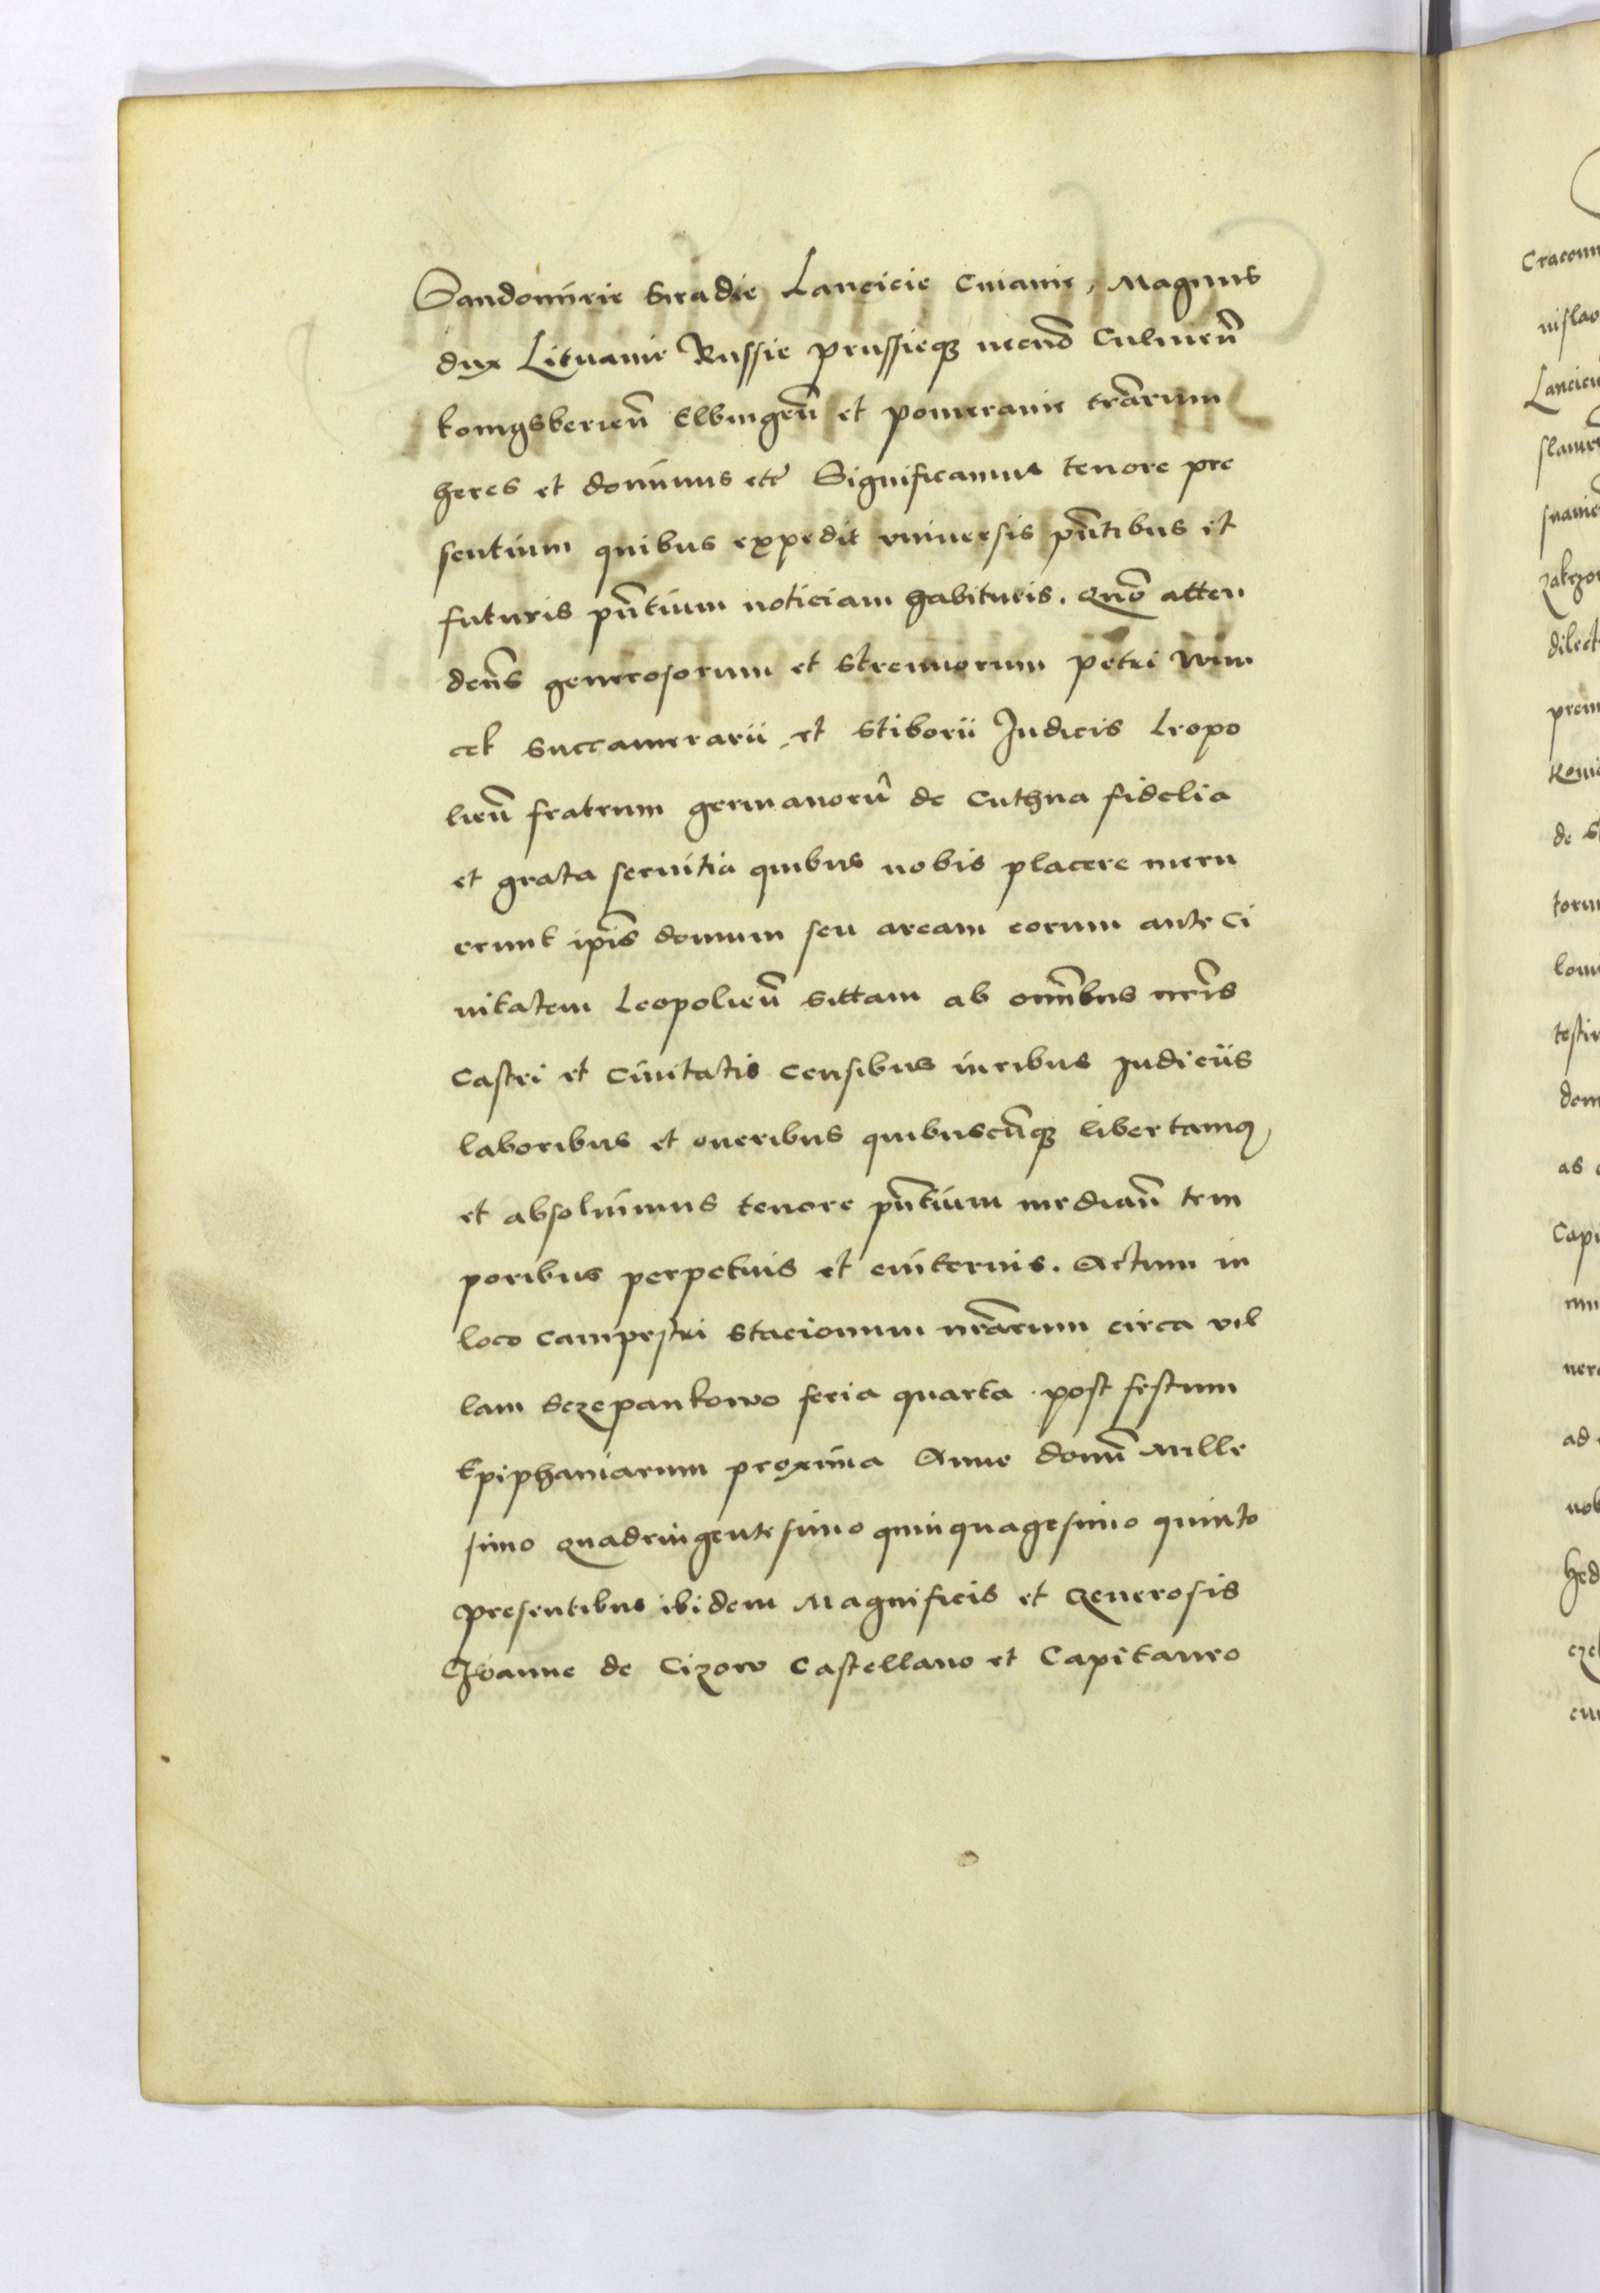 Sandomirie Siradie Lancicie Cuiauie, Magnus
dux Lituanie Russie prussieq3 necnō Culmen̄
konigsberien̄ Elbingen̄ et pomeranie tr̄arum
heres et dominus etc̄ Significamus tenore pre
sentium quibus expedit vniuersis pn̄tibus et
futuris pn̄tium noticiam habituris. Quō atten
den̄s generosorum et strennuorum petri
cek Succamerarii et Stiborii Judicis Leopo
lien̄ fratrum germanorū de Cuthna fidelia
et grata seruitia quibus nobis placere meru
erunt ip̄is domum seu aream eorum ante Ci
uitatem Leopolien̄ sittam ab om̄ibus nr̄is
Castri et Ciuitatis Censibus iuribus Judiciis
laboribus et oneribus quibuscūq3 libertamus
et absoluimus tenore pn̄tium median̄ tem
poribus perpetuis et euiternis. Actum in
loco campestri stacionum nr̄arum circa vil
lam Sczepankowo feria quarta post festum
Epiphaniarum proxima Anno domī Mille
simo quadringentesimo quinquagesimo quinto
presentibus ibidem Magnificis et Generosis
Joanne de Cizow Castellano et Capitaneo
Lancicie
dilect
de
Capi
ad